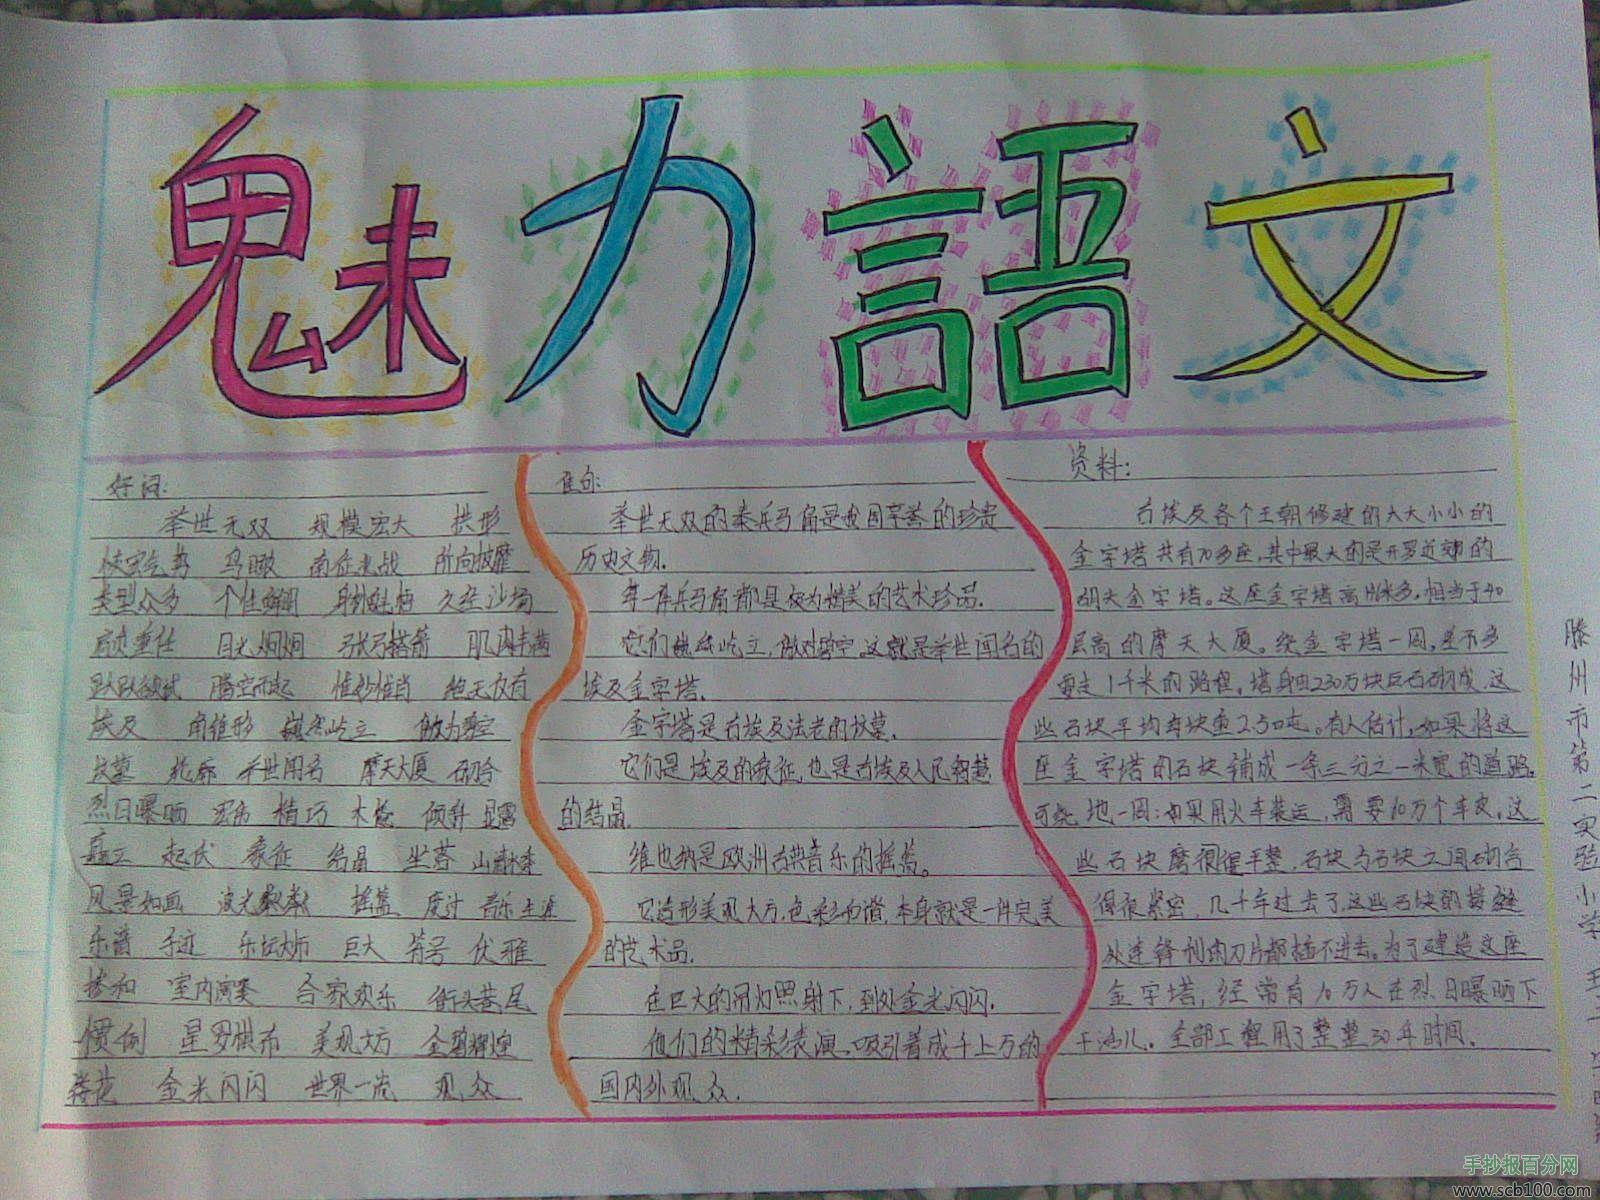 魅力語文
好词:
举世无双 规模宏大 拱形
恢宏气势 鸟瞰 南征北战 所向披靡
类型众多 个性鲜明 身材魁梧 久经沙场
肩负重任 目光炯炯 张弓搭箭 肌肉丰满
跃跃欲试 腾空而起 惟妙惟肖 绝无仅有
埃及 角锥形 巍然屹立 傲对碧空
坟墓 轮廓 举世闻名 摩天大厦 砌合
烈日曝晒 宏伟 精巧 木橇 倾斜 显露
矗立 起伏 象征 结晶 坐落 山清水秀
风景如画 波光粼粼 摇篮 设计 音乐生涯
乐谱 手迹 乐坛大师 巨大 符号 优雅
揉和 室内演奏 合家欢乐 街头巷尾
惯例 星罗棋布 美观大方 金碧辉煌
金光闪闪 世界一流 观众
佳句:
举世无双的秦兵马俑是我国享誉的珍贵
历史文物.
每一件兵马俑都是极为精美的艺术珍品.
它们巍然屹立,傲对碧空,这就是举世闻名的
埃及金字塔.
金字塔是古埃及法老的坟墓.
它们是埃及的象征,也是古埃及人民智慧
的结晶.
维也纳是欧洲古典音乐的摇篮。
它造形美观大方,色彩和谐,本身就是一件完美
的艺术品.
在巨大的吊灯照射下,到处金光闪闪.
他们的精彩表演,吸引着成千上万的
国内外观众.
资料:
古埃及各个王朝修建的大大小小的
金字塔共有70多座,其中最大的是开罗近郊的
胡夫金字塔。这座金字塔高146米多,相当于40
层高的摩天大厦。绕金字塔一周,差不多
要走1千米的路程。塔身由230万块巨石砌成,这
些石块平均每块重2.50吨。有人估计,如果将这
座金字塔的石块铺成一条三分之一米宽的道路,
可绕地一周;如果用火车装运,需要60万个车皮,这
些石块磨得很平整,石块与石块之间砌合
得很紧密,几千年过去了,这些石块的接缝
处连锋利的刀片都插不进去。为了建造这座
金字塔,经常有10万人在烈日曝晒下
干活儿。全部工程用了整整30年时间.
滕州市第二实验小学
手抄报百分网
www.scb100.com